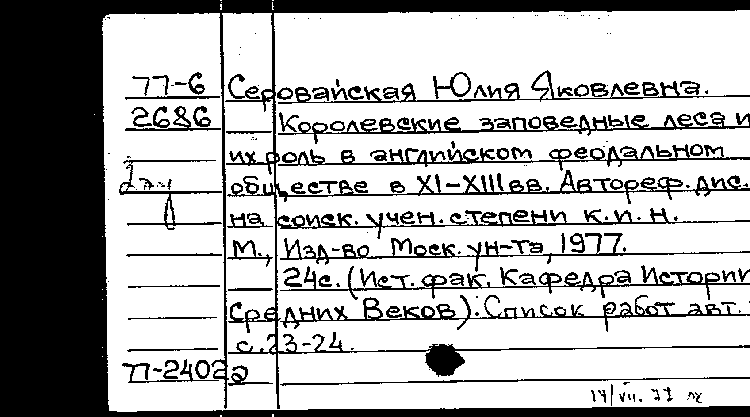 77-6 Серовайская Юлия Яковлевна.
2686 Королевские заповедные леса и
их роль в английском феодальном
2эк обществе в XI-XIII вв. Автореф. дис.
на соиск. учен. степени к.и.н.
М., Изд-во Моск. ун-та, 1977.
24с. (Ист. фак. Кафедра Истории
Средних Веков). Список работ авт.
с.23-24.
77-24022
14/VII. 77